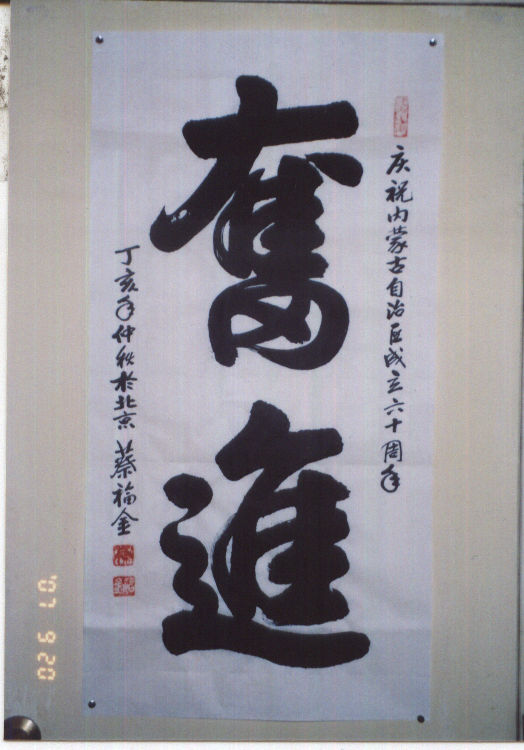 庆祝内蒙古自治区成立六十周年
奮進
丁亥年仲秋於北京 蔡福金
'07 9 20